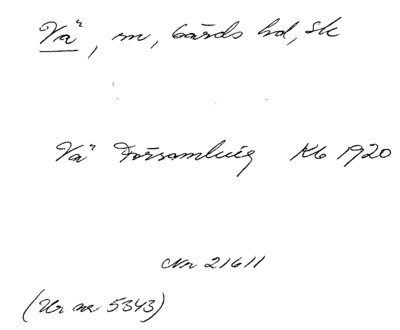 Vä, m, Gärds hd, Sk
Vä Församling Kb 1920
Nr 21611
(Ur nr 5343)